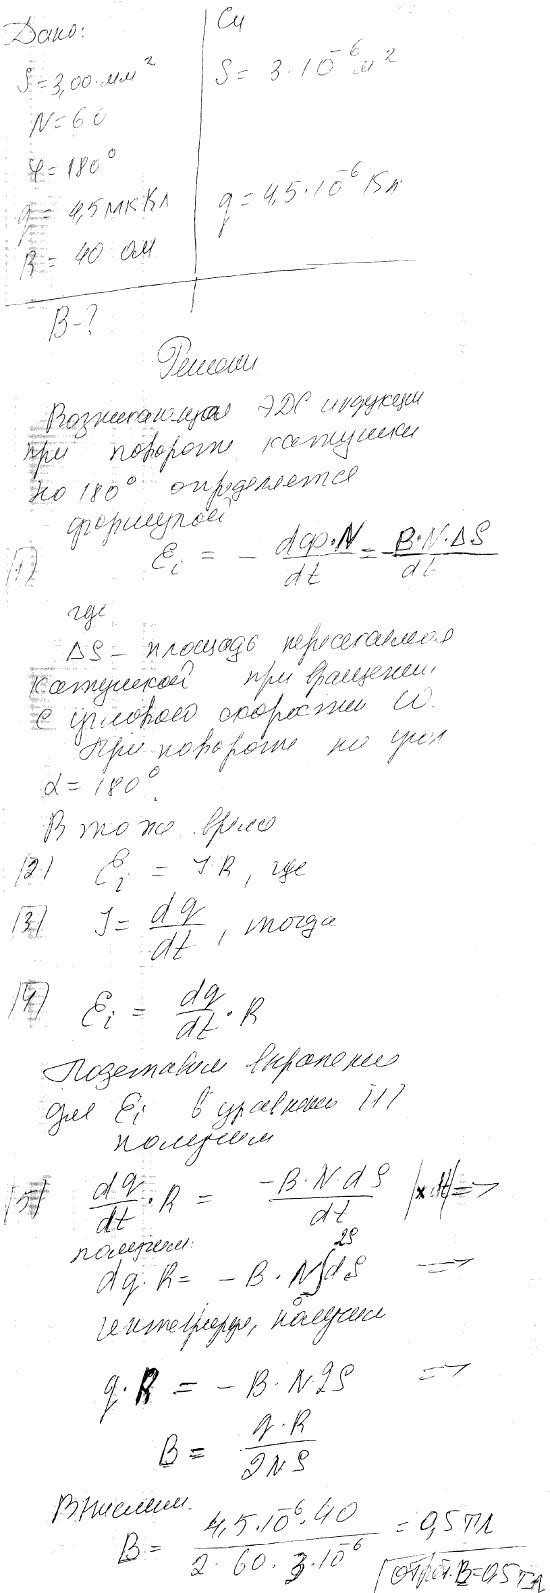 Дано:
Си
S = 3,00 мм²
S = 3·10⁻⁶ м²
N = 60
φ = 180°
q = 4,5 мкКл
q = 4,5·10⁻⁶ Кл
R = 40 Ом
B - ?
Решение
Возникающая ЭДС индукции
при повороте катушки
на 180° определяется
формулой
(1) Ɛi = - dФ·N/dt = B·N·ΔS/dt
где
ΔS – площадь пересекаемая
катушкой при вращении
с угловой скоростью ω.
При повороте на угол
α = 180°
В то же время
(2) Ɛi = IR, где
(3) I = dq/dt, тогда
(4) Ɛi = dq/dt · R
Подставим выражение
для Ɛi в уравнение (1)
получим
(5) dq/dt · R = -B·N dS/dt |× dt| =>
получим:
dq·R = -B·N∫₀²ˢdS =>
интегрируя, получим
q·R = -B·N·2S =>
B = q·R/2NS
Вычислим.
B = 4,5·10⁻⁶·40/2·60·3·10⁻⁶ = 0,5 Тл
Ответ: B = 0,5 Тл